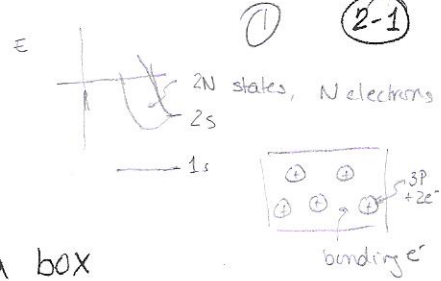 ① 2-1
E
2N states, N electrons
2s
1s
3P
+2e⁻
+ +
+ + - +
bonding e⁻
box